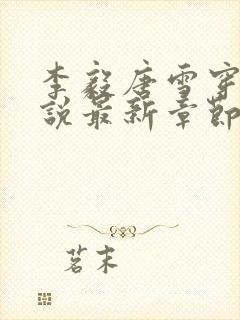 李毅唐雪穿
说最新章節
茗末